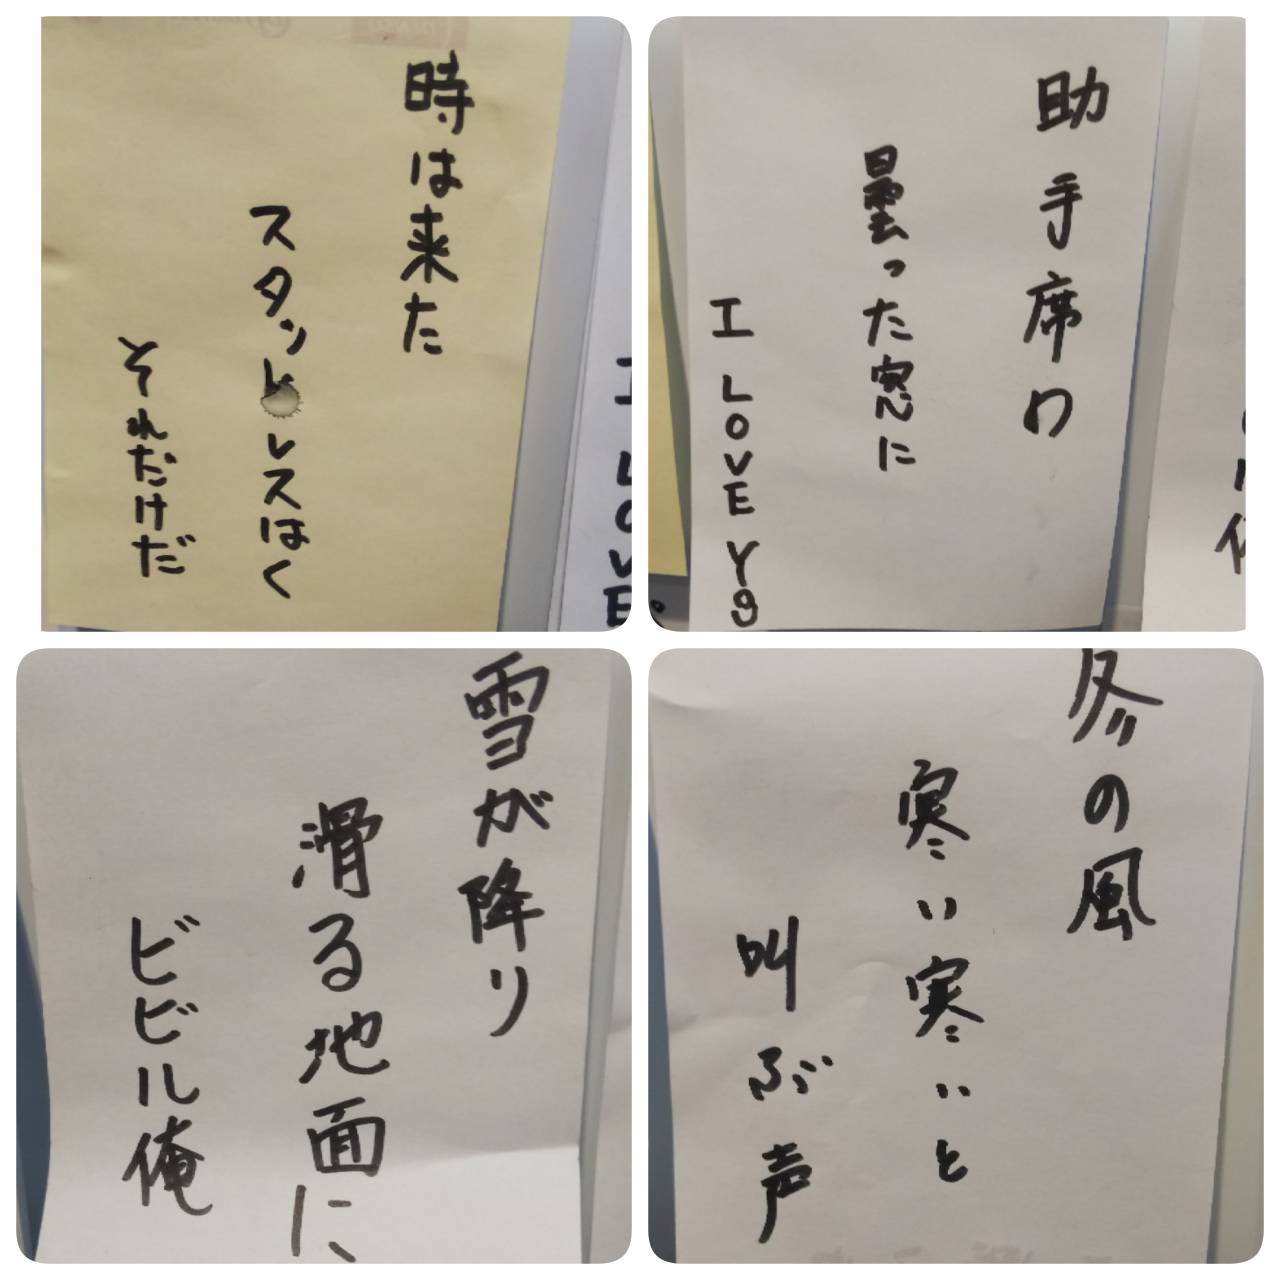 時は来た
スタッドレスはく
それだけだ
助手席の
曇った窓に
I LOVE Yg
雪が降り
滑る地面に
ビビル俺
冬の風
寒い寒いと
叫ぶ声